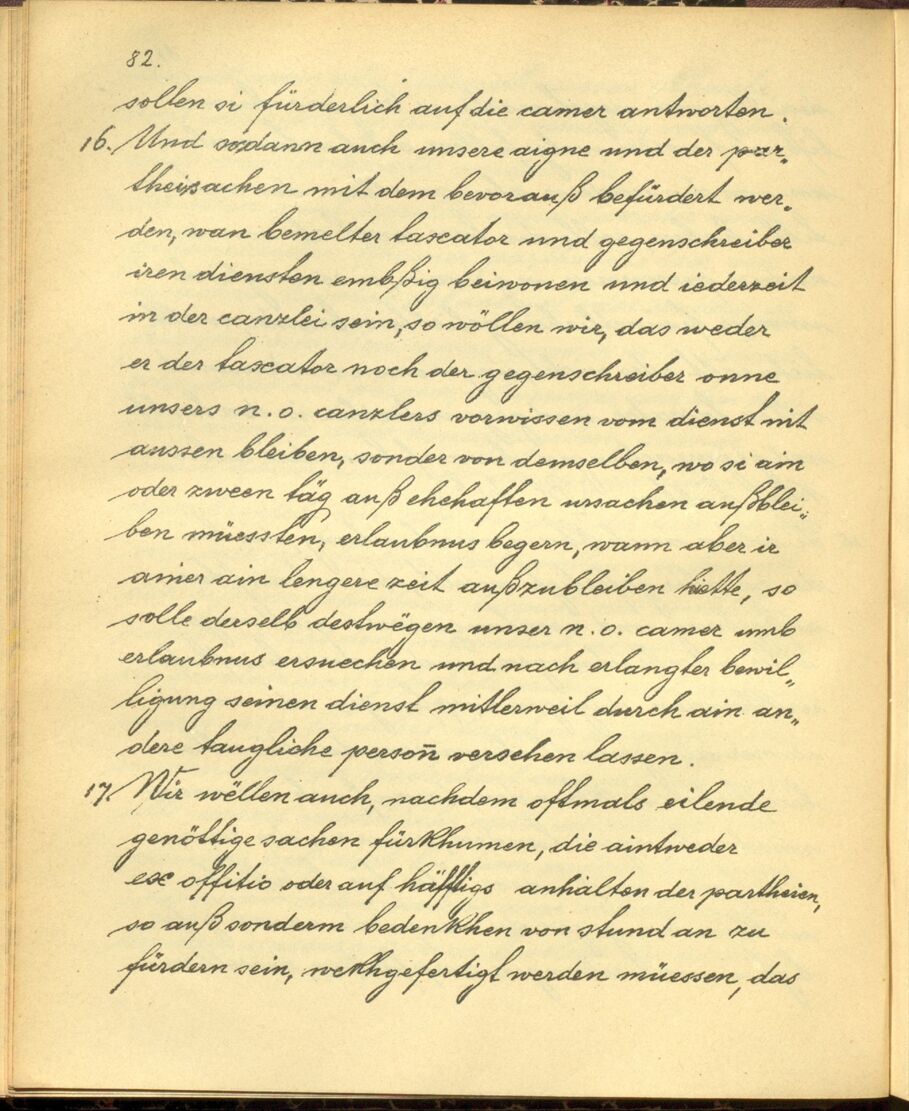 82.
sollen si fürderlich auf die camer antworten.
16. Und sodann auch unsere aigne und der par„
theisachen mit dem bevorauß befürdert wer„
den, wan bemelter taxator und gegenschreiber
iren diensten embßig beiwonen und iederzeit
in der canzlei sein, so wöllen wir, das weder
er der taxator noch der gegenschreiber onne
unsers n. o. canzlers vorwissen vom dienst nit
aussen bleiben, sonder von demselben, wo si ain
oder zween täg auß ehehaften ursachen außblei„
ben müessten, erlaubnus begern, wann aber ir
ainer ain lengere zeit außzubleiben hette, so
solle derselb destwëgen unser n. o. camer umb
erlaubnus ersuechen und nach erlangter bewil„
ligung seinen dienst mitlerweil durch ain an„
dere taugliche person̄ versehen lassen.
17. Wir wëllen auch, nachdem oftmals eilende
genöttige sachen fürkhumen, die aintweder
ex offitio oder auf häfftigs anhalten der partheien,
so auß sonderm bedenkhen von stund an zu
fürdern sein, wekhgefertigt werden müessen, das